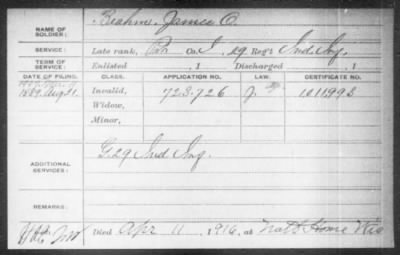 NAME OF SOLDIER: Beahm, James O.
SERVICE: Late rank, Pvt Co. I, 29 Reg't Ind. Inf.
TERM OF SERVICE: Enlisted , 1 Discharged , 1
DATE OF FILING. CLASS. APPLICATION NO. LAW. CERTIFICATE NO.
1889 Aug 31. Invalid, 723.726 J 1011993
Widow,
Minor,
ADDITIONAL SERVICES: G. 29 Ind Inf.
REMARKS:
Died Apr 11, 1916, at Nat'l Home Wis